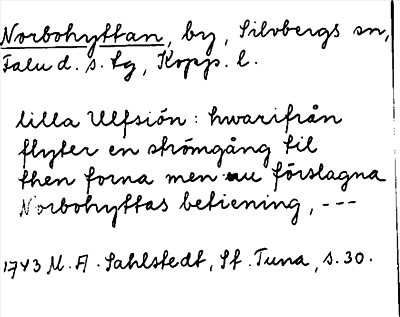 Norbohyttan, by, Silvbergs sn,
Falu d. s. lg, Kopp. l.
lilla Ulfsiön: hwarifrån
flyter en strömgång til
then forna men nu förslagna
Norbohyttas betiening, ---
1743 M. A. Sahlstedt, St. Tuna, s. 30.